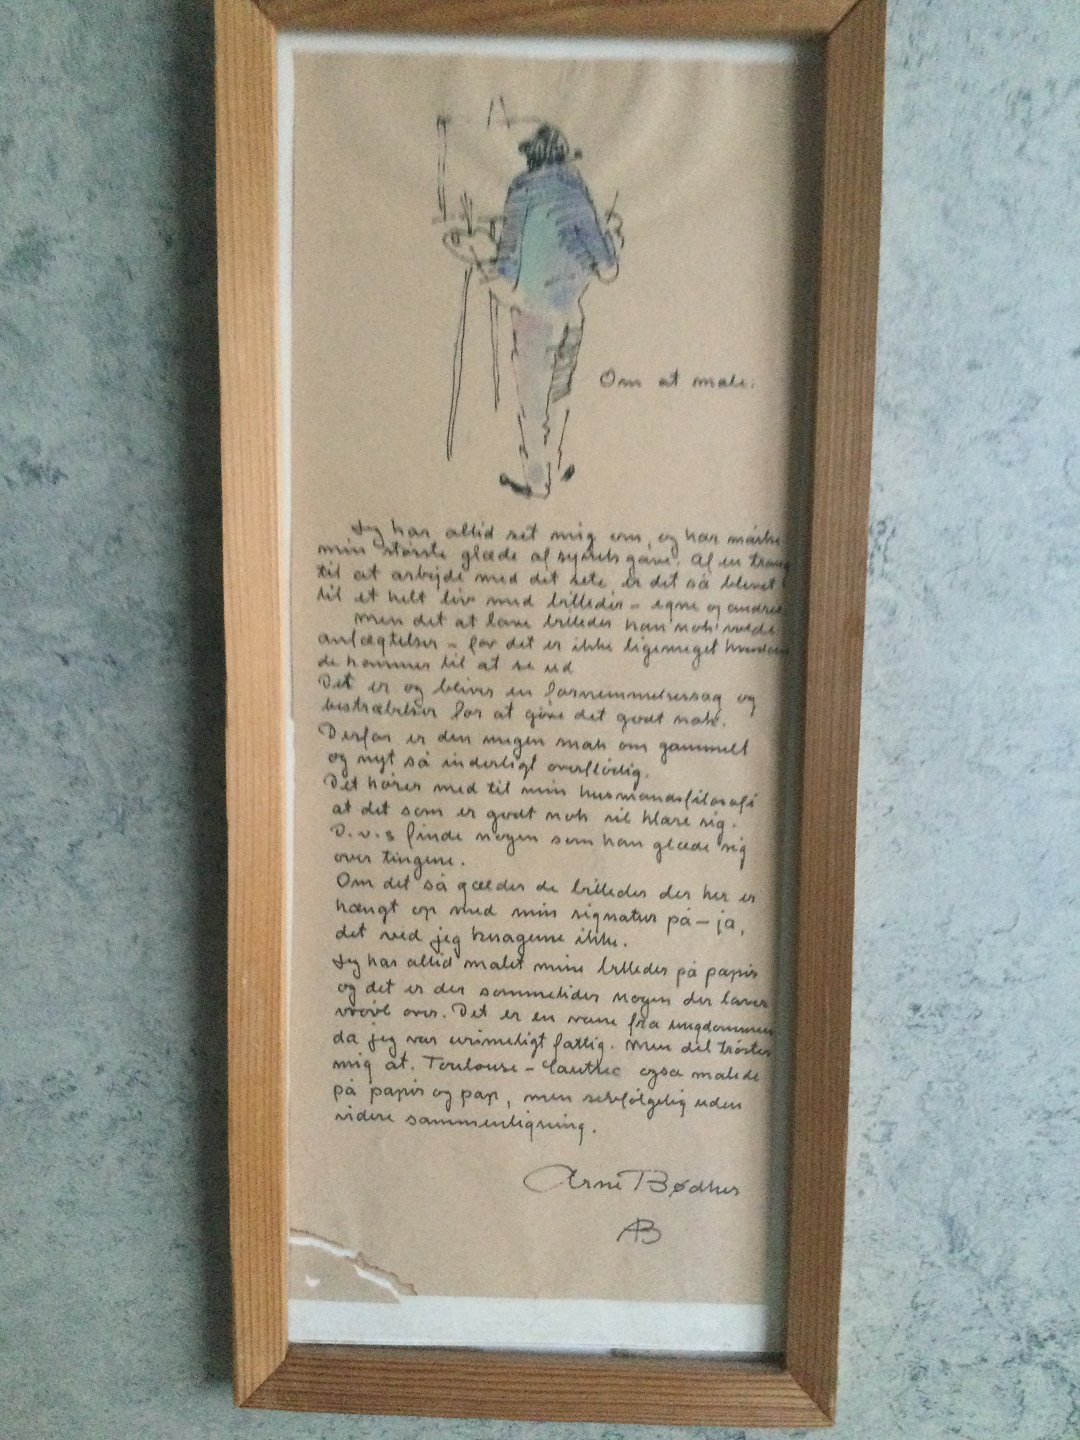 Om at male.
Jeg har altid set mig om, og har måske
min største glæde af synets gave. Af en trang
til at arbejde med det sete er det så blevet
til et helt liv med billeder – egne og andres
men det at lave billeder kan nok volde
anfægtelser – for det er ikke ligemeget hvordan
de kommer til at se ud
Det er og bliver en fornemmelsessag og
bestræbelser for at gøre det godt nok.
Derfor er den megen snak om gammelt
og nyt så inderligt overflødig.
Det hører med til min husmandsfilosofi
at det som er godt nok vil klare sig.
D.v.s finde nogen som kan glæde sig
over tingene.
Om det så gælder de billeder der her er
hængt op med min signatur på – ja,
det ved jeg knagene ikke.
Jeg har altid malet mine billeder på papir
og det er der sommetider nogen der laver
vrøvl over. Det er en vane fra ungdommen
da jeg var urimeligt fattig. Men det trøster
mig at. Toulouse – Lautrec også malede
på papir og pap, men selvfølgelig uden
videre sammenligning.
Arne Bødker
AB